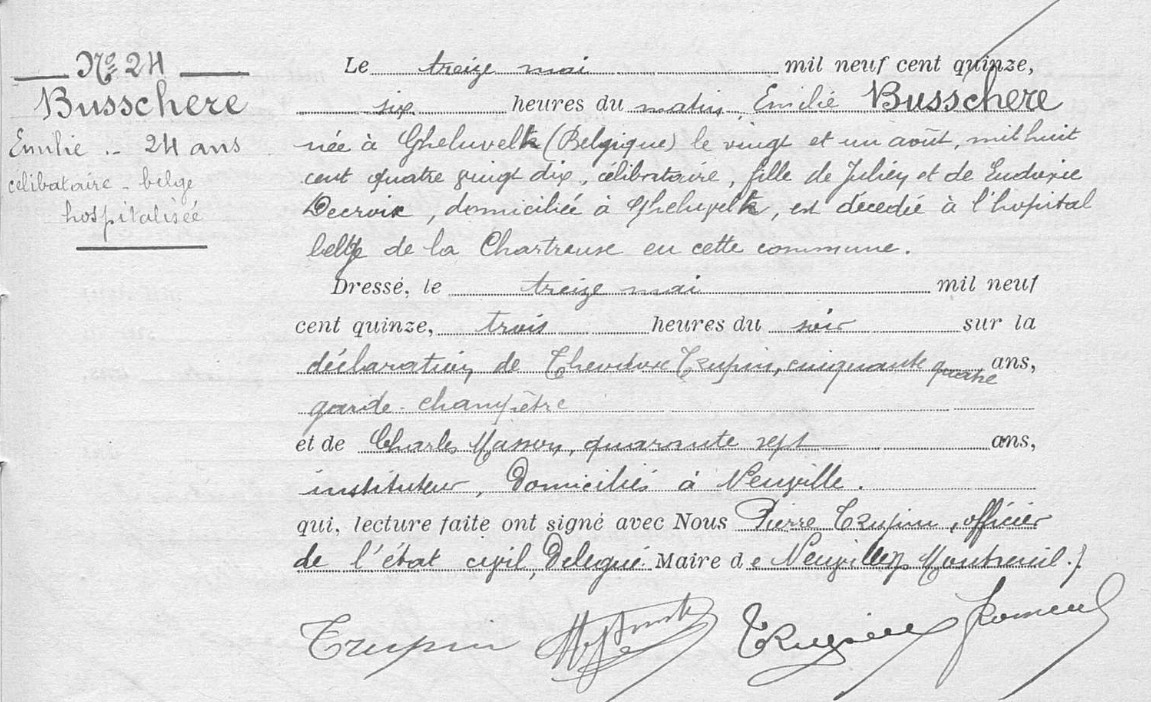 No 24
Busschere
Emilie - 24 ans
célibataire - belge
hospitalisée
Le treize mai mil neuf cent quinze,
six heures du matin, Emilie Busschere
née à Gheluvelt (Belgique) le vingt et un août, mil huit
cent quatre vingt dix, célibataire, fille de Julien et de Eudoxie
Decroix, domiciliée à Gheluvelt, est décedée à l'hopital
belge de la Chartreuse en cette commune.
Dressé, le treize mai mil neuf
cent quinze, trois heures du soir sur la
déclaration de Trupin, cinquante quatre ans,
garde-champêtre
et de Charles Masson, quarante sept ans,
instituteur, domiciliés à Neuville.
qui, lecture faite ont signé avec Nous Pierre Trupin, officier
de l'état civil, Délégué. Maire de Neuville s/ Montreuil.
Trupin